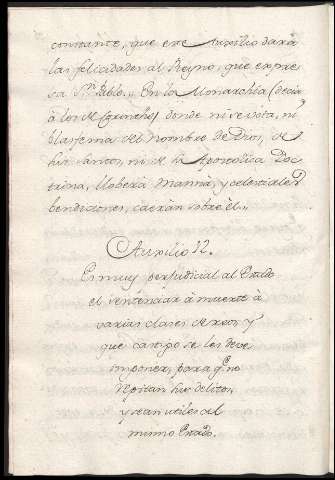 constante, que ese Auxilio dará
las felicidades al Reyno, que expre
sa Sn. Pablo. En la Monarchîa (decia
à los de Corintho) donde ni se vota, ni
blasfema del nombre de Dios, de
sus Santos, ni de la Apostolica Doc
trina, lloberá Mannà, y celestiales
bendiciones, caeràn sobre èl.
Auxilio 12.
Es muy perjudicial al Estado
el sentenciar à muerte à
varias clases de reos, y
que castigo se les deve
imponer, para q.e no
repitan sus delitos,
y sean utiles al
mismo Estado.